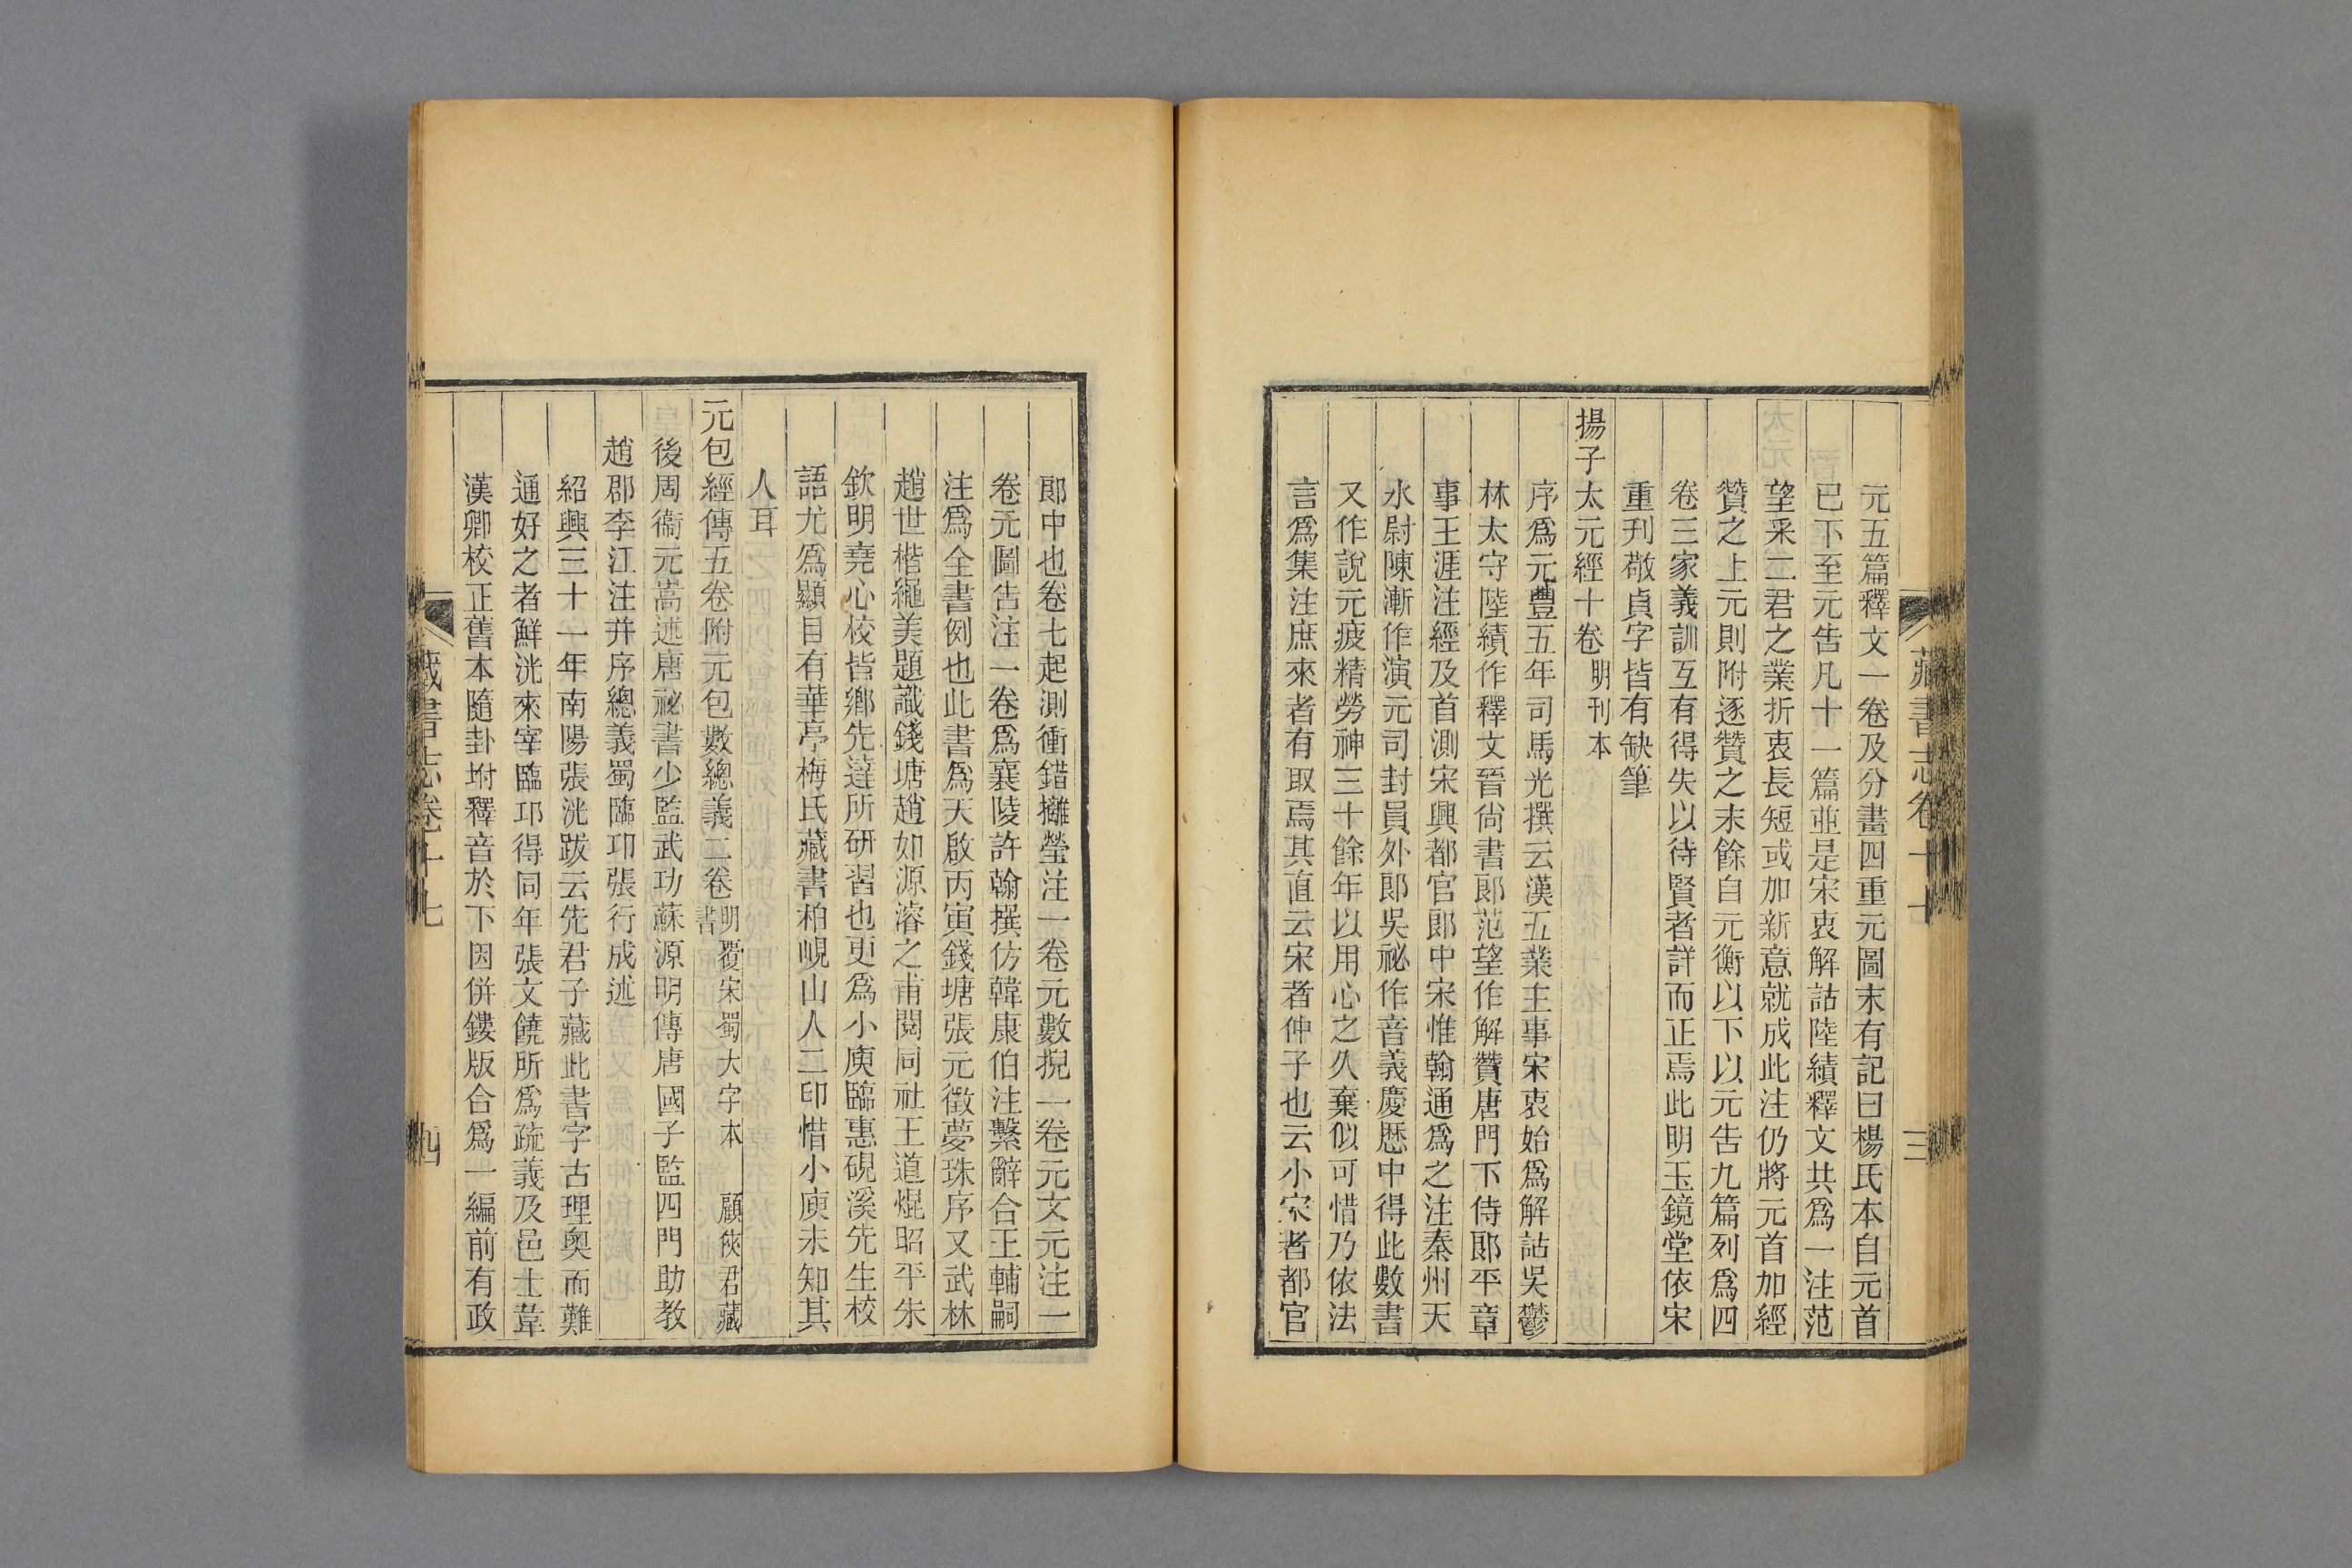 藏書志卷十七
三
元五篇釋文一卷及分畫四重元圖末有記曰楊氏本自元首
已下至元告凡十一篇並是宋衷解詁陸績釋文共爲一注范
望采二君之業折衷長短或加新意就成此注仍將元首加經
贊之上元則附逐贊之末餘自元衡以下以元告九篇列爲四
卷三家義訓互有得失以待賢者詳而正焉此明玉鏡堂依宋
重刊敬貞字皆有缺筆
揚子太元經十卷 明刊本
序爲元豐五年司馬光撰云漢五業主事宋衷始爲解詁吳鬱
林太守陸績作釋文晉尚書郎范望作解贊唐門下侍郎平章
事王涯注經及首測宋興都官郎中宋惟翰通爲之注秦州天
水尉陳漸作演元司封員外郎吳祕作音義慶歷中得此數書
又作說元疲精勞神三十餘年以用心之久棄似可惜乃依法
言爲集注庶來者有取焉其直云宋者仲子也云小宋者都官
郎中也卷七起測衝錯攡瑩注一卷元數掜一卷元文元注一
卷元圖告注一卷爲襄陵許翰撰仿韓康伯注繫辭合王輔嗣
注爲全書例也此書爲天啟丙寅錢塘張元徵夢珠序又武林
趙世楷繩美題識錢塘趙如源濬之甫閱同社王道焜昭平朱
欽明堯心校皆鄉先達所研習也更爲小庾臨惠硯溪先生校
語尤爲顯目有華亭梅氏藏書柏峴山人二印惜小庾未知其
人耳
元包經傳五卷附元包數總義二卷 明覆宋蜀大字本 顧俠君藏
書
後周衞元嵩述唐祕書少監武功蘇源明傳唐國子監四門助教
趙郡李江注并序總義蜀臨邛張行成述
紹興三十一年南陽張洸跋云先君子藏此書字古理奧而難
通好之者鮮洸來宰臨邛得同年張文饒所爲疏義及邑士韋
漢卿校正舊本隨卦坿釋音於下因併鏤版合爲一編前有政
藏書志卷十七
四